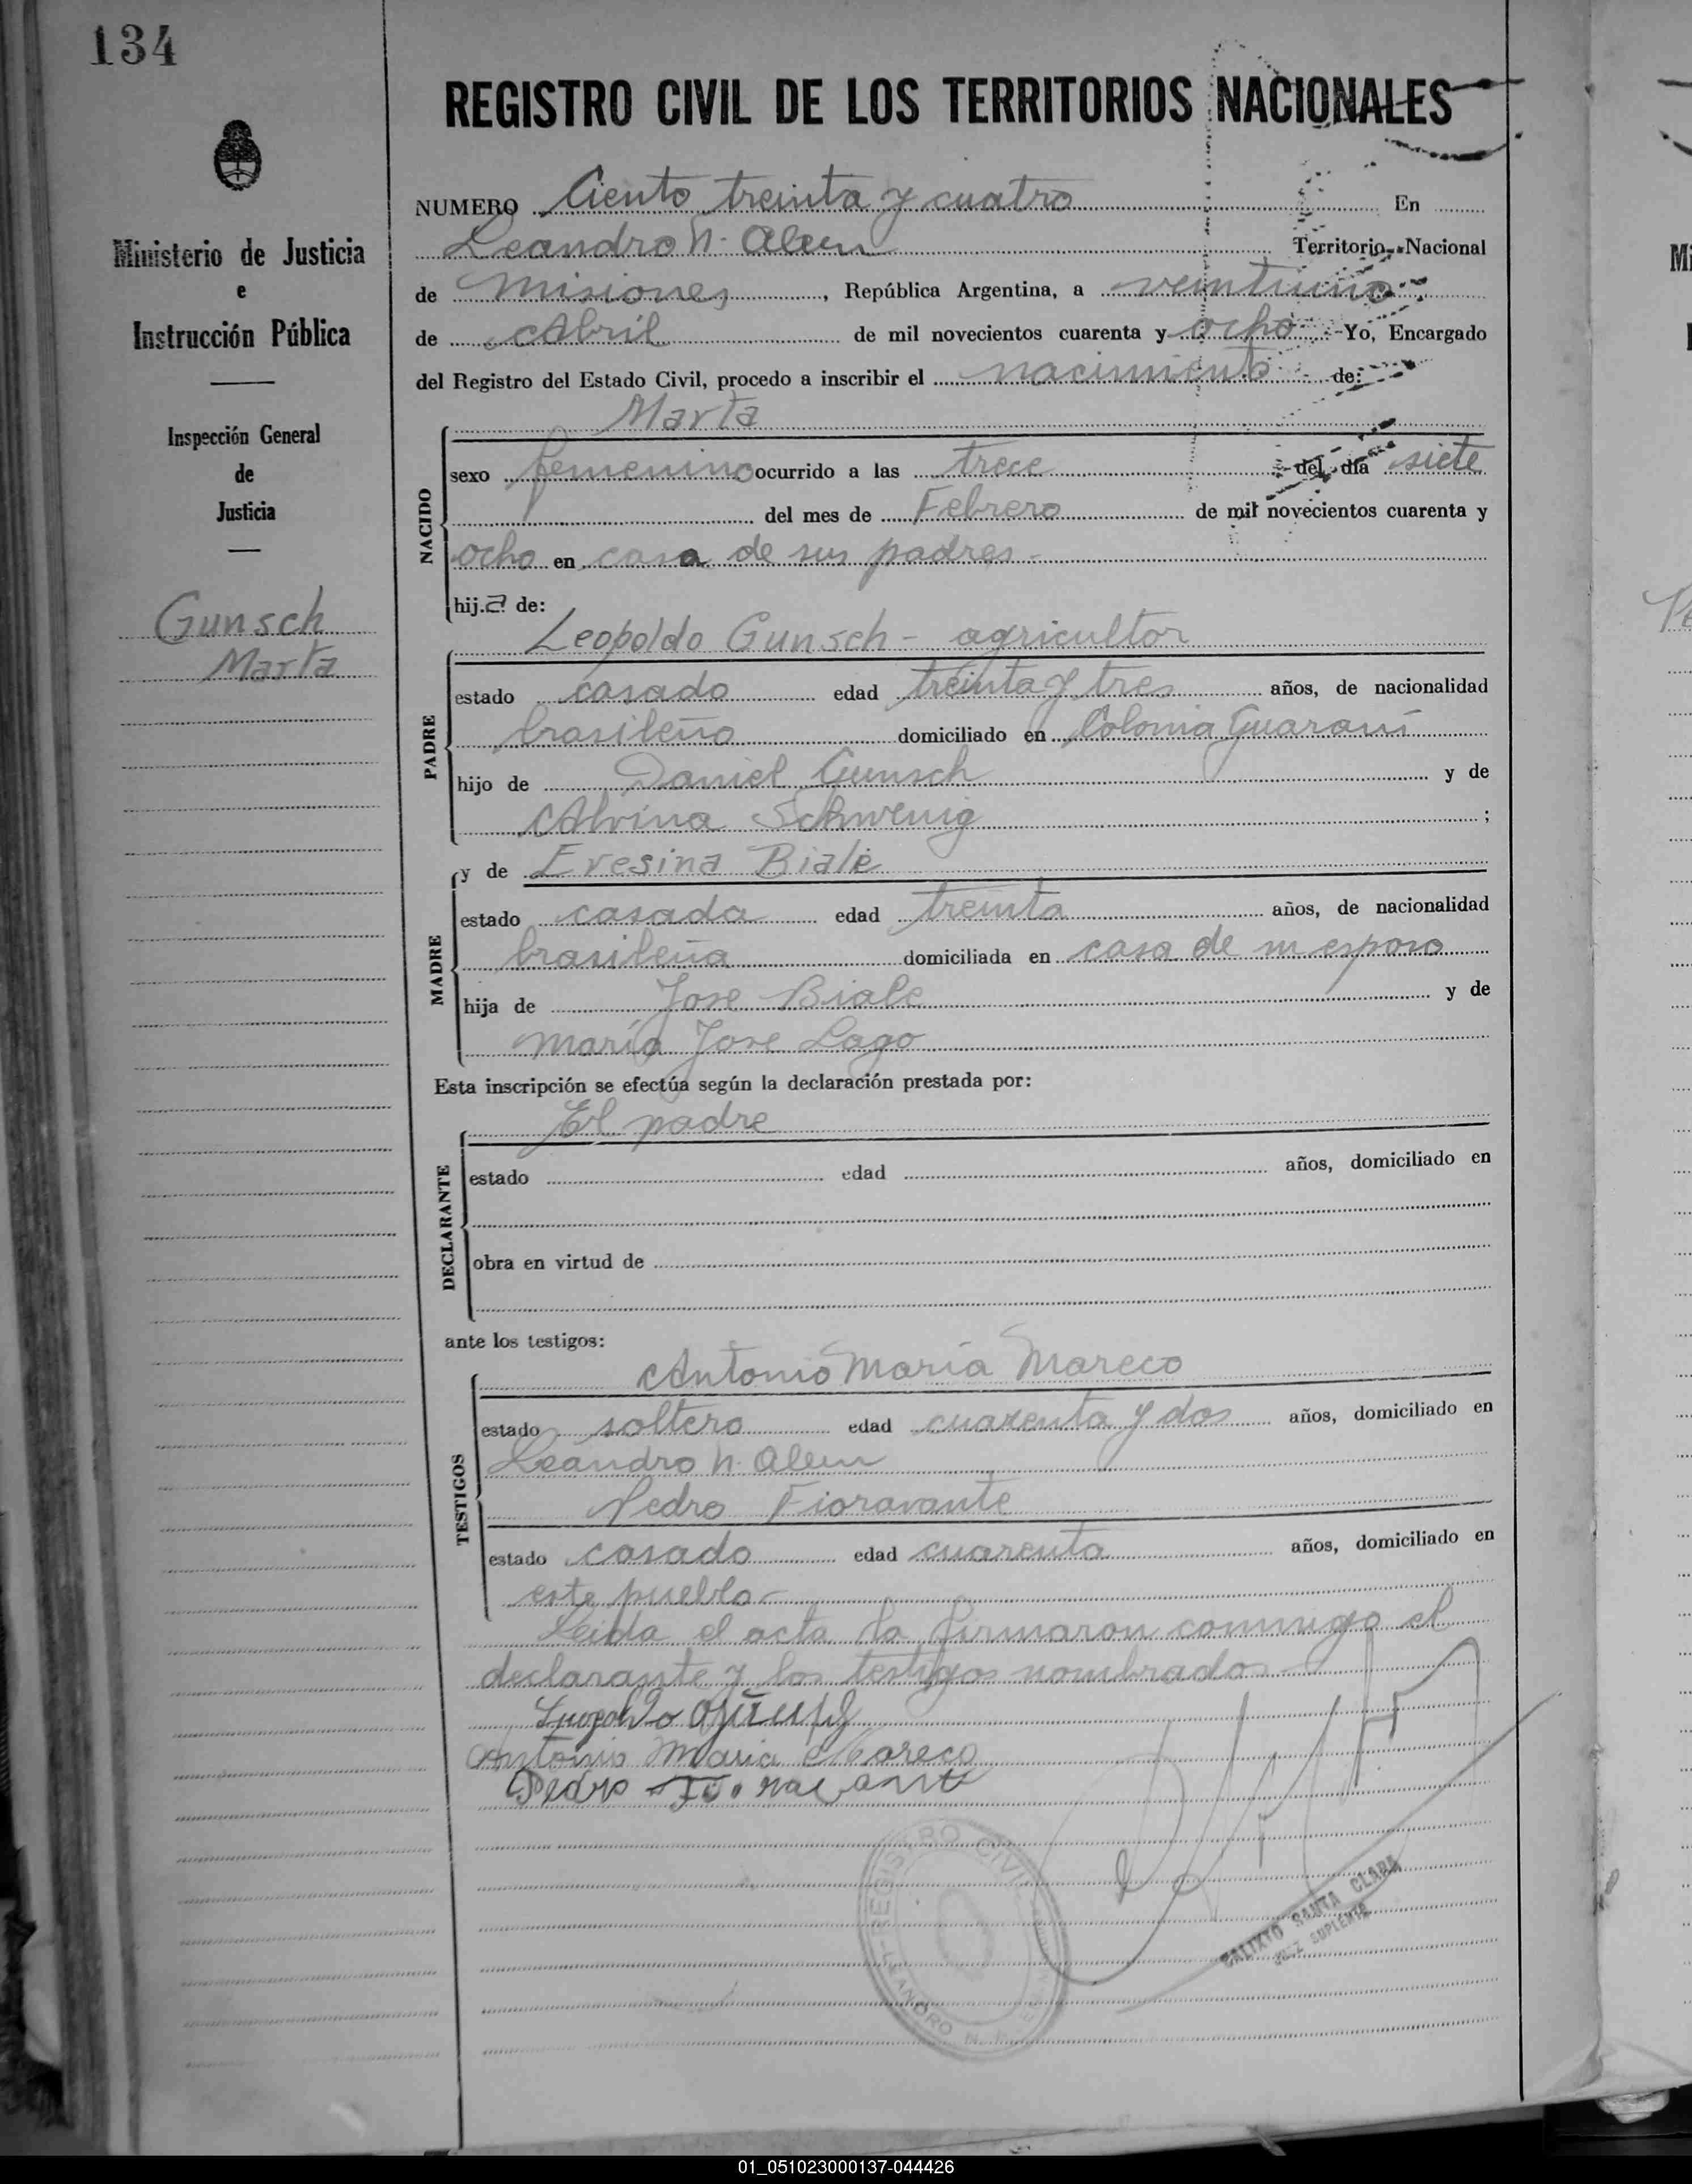 134
REGISTRO CIVIL DE LOS TERRITORIOS NACIONALES
Ministerio de Justicia
e
Instrucción Pública
Inspección General
de
Justicia
Gunsch
Marta
NUMERO Ciento treinta y cuatro En
Leandro N. Alem Territorio Nacional
de Misiones, República Argentina, a veintiuno
de Abril de mil novecientos cuarenta y ocho Yo, Encargado
del Registro del Estado Civil, procedo a inscribir el nacimiento de:
Marta
NACIDO
sexo femenino ocurrido a las trece del día siete
del mes de Febrero de mil novecientos cuarenta y
ocho en casa de sus padres.-
hija de:
Leopoldo Gunsch - agricultor
PADRE
estado casado edad treinta y tres años, de nacionalidad
brasileño domiciliado en Colonia Guaraní
hijo de Daniel Gunsch y de
Alvina Schwenig ;
y de Eresina Biale
MADRE
estado casada edad treinta años, de nacionalidad
brasileña domiciliada en casa de su esposo
hija de Jose Biale y de
María Jose Lago
Esta inscripción se efectúa según la declaración prestada por:
El padre
DECLARANTE
estado edad años, domiciliado en
obra en virtud de
ante los testigos:
Antonio María Mareco
TESTIGOS
estado soltero edad cuarenta y dos años, domiciliado en
Leandro N. Alem
Pedro Fioravante
estado casado edad cuarenta años, domiciliado en
este pueblo-
Leida el acta la firmaron conmigo el
declarante y los testigos nombrados-
Leopoldo
Antonio Maria Mareco
Pedro Fioravante
REGISTRO CIVIL
LEANDRO N.
CALIXTO SANTA CLARA
JUEZ SUPLENTE
01_051023000137-044426